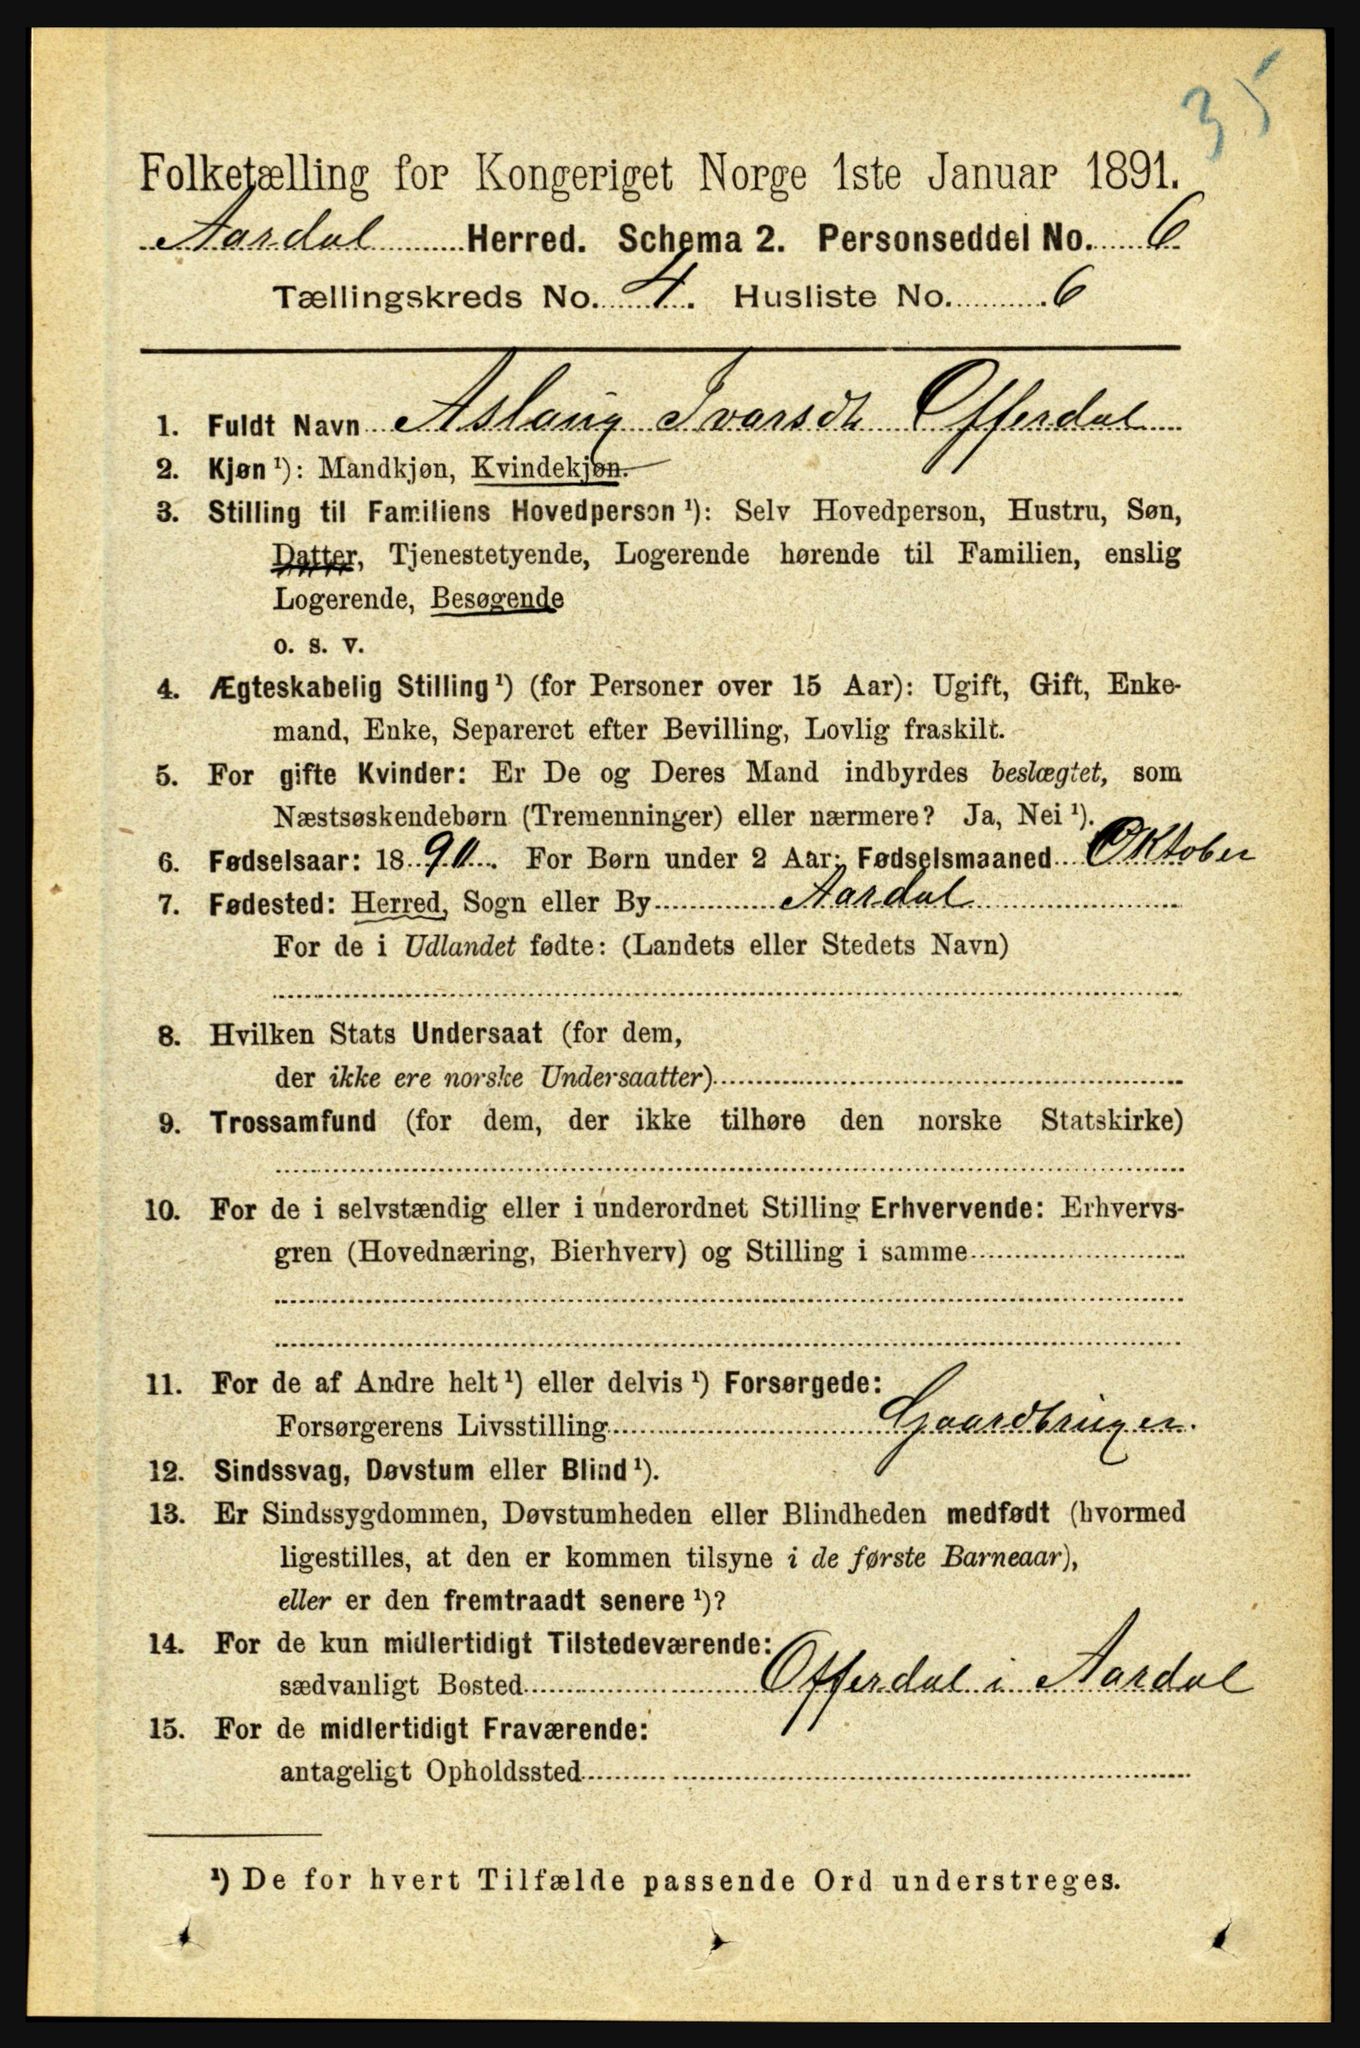 35
Folketælling for Kongeriget Norge 1ste Januar 1891.
Aardal Herred. Schema 2. Personseddel No. 6
Tællingskreds No. 4. Husliste No. 6
1. Fuldt Navn Aslaug Ivarsdt Offerdal
2. Kjøn ¹): Mandkjøn, Kvindekjøn.
3. Stilling til Familiens Hovedperson ¹): Selv Hovedperson, Hustru, Søn,
Datter, Tjenestetyende, Logerende hørende til Familien, enslig
Logerende, Besøgende
o. s. v.
4. Ægteskabelig Stilling ¹) (for Personer over 15 Aar): Ugift, Gift, Enke-
mand, Enke, Separeret efter Bevilling, Lovlig fraskilt.
5. For gifte Kvinder: Er De og Deres Mand indbyrdes beslægtet, som
Næstsøskendebørn (Tremenninger) eller nærmere? Ja, Nei ¹).
6. Fødselsaar: 1890. For Børn under 2 Aar: Fødselsmaaned Oktober
7. Fødested: Herred, Sogn eller By Aardal
For de i Udlandet fødte: (Landets eller Stedets Navn)
8. Hvilken Stats Undersaat (for dem,
der ikke ere norske Undersaatter)
9. Trossamfund (for dem, der ikke tilhøre den norske Statskirke)
10. For de i selvstændig eller i underordnet Stilling Erhvervende: Erhvervs-
gren (Hovednæring, Bierhverv) og Stilling i samme
11. For de af Andre helt ¹) eller delvis ¹) Forsørgede:
Forsørgerens Livsstilling Gaardbruger.
12. Sindssvag, Døvstum eller Blind ¹).
13. Er Sindssygdommen, Døvstumheden eller Blindheden medfødt (hvormed
ligestilles, at den er kommen tilsyne i de første Barneaar),
eller er den fremtraadt senere ¹)?
14. For de kun midlertidigt Tilstedeværende:
sædvanligt Bosted Offerdal i Aardal
15. For de midlertidigt Fraværende:
antageligt Opholdssted
¹) De for hvert Tilfælde passende Ord understreges.